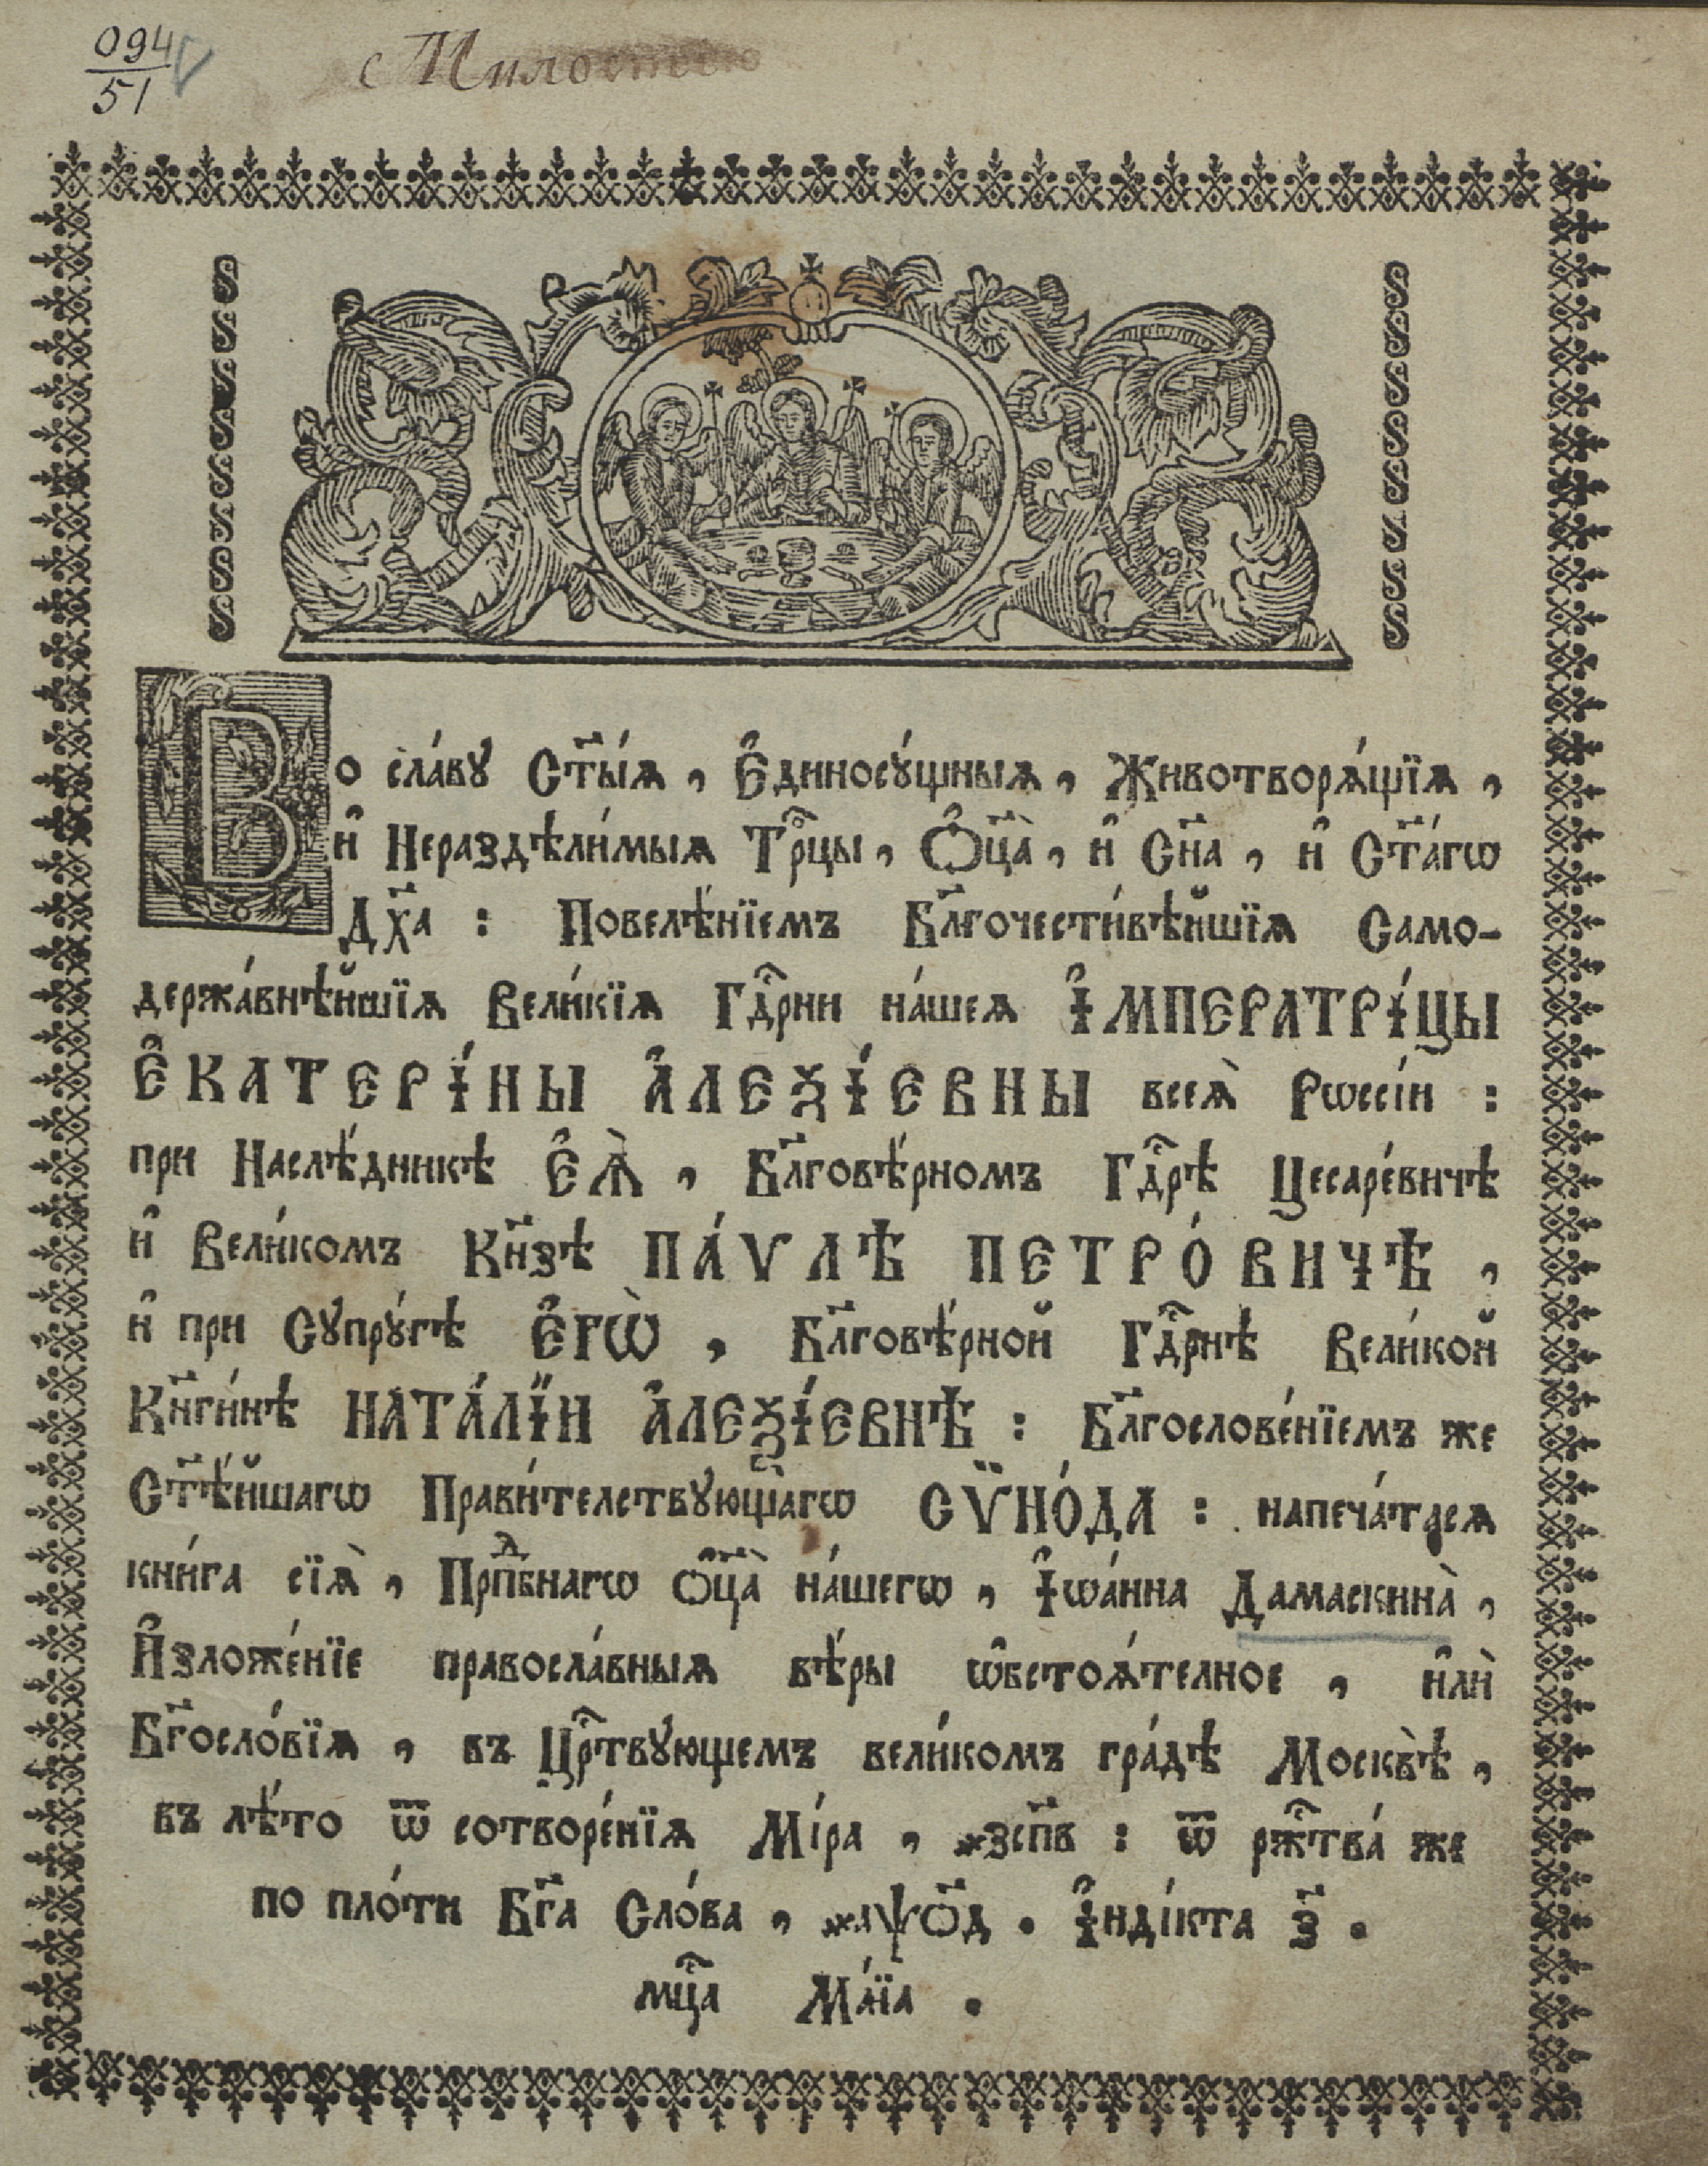 094
51
с Милостію
Во сла́вꙋ Ст҃ы́ѧ, Є҆диносꙋ́щныѧ, Животворѧ́щїѧ,
и҆ Нераздѣли́мыѧ Трⷪ҇цы, Ѻ҆ц҃а̀, и҆ Сн҃а, и҆ Ст҃а́гѡ
Дх҃а : Повелѣ́нїемъ Бл҃гочести́вѣйшїѧ Само-
держа́внѣйшїѧ Вели́кїѧ Гдⷭ҇рни на́шеѧ І҆МПЕРАТРІ́ЦЫ
Є҆КАТЕРІ́НЫ А҆ЛЕѮІ́ЕВНЫ всеѧ̀ Рѡссі́и :
при Наслѣ́дникѣ Є҆Ѧ̀, Бл҃говѣ́рномъ Гдⷭ҇рѣ Цесаре́вичѣ
и҆ Вели́комъ Кн҃зѣ ПА́ѴЛѢ ПЕТРО́ВИЧѢ,
и҆ при Сꙋпрꙋ́гѣ Є҆ГѠ̀, Бл҃говѣ́рной Гдⷭ҇рнѣ Вели́кой
Кн҃ги́нѣ НАТА́ЛЇИ А҆ЛЕѮІ́ЕВНѢ : Бл҃гослове́нїемъ же
Ст҃ѣ́йшагѡ Прави́телствꙋющагѡ СѶНО́ДА : напеча́тасѧ
кни́га сїѧ̀, Прпⷣбнагѡ Ѻ҆ц҃а̀ на́шегѡ, І҆ѡа́нна Дамаскина̀,
И҆зложе́нїе правосла́вныѧ вѣ́ры ѡ҆бстоѧ́телное, и҆лѝ
Бг҃осло́вїѧ, въ Црⷭ҇твꙋющемъ вели́комъ гра́дѣ Москвѣ̀,
въ лѣ́то ѿ сотворе́нїѧ Мі́ра, ҂зсп҃в : ѿ ржⷭ҇тва́ же
по пло́ти Бг҃а Сло́ва, ҂аѱѻ҃д. І҆нді́кта з҃.
мцⷭ҇а Ма́їа.